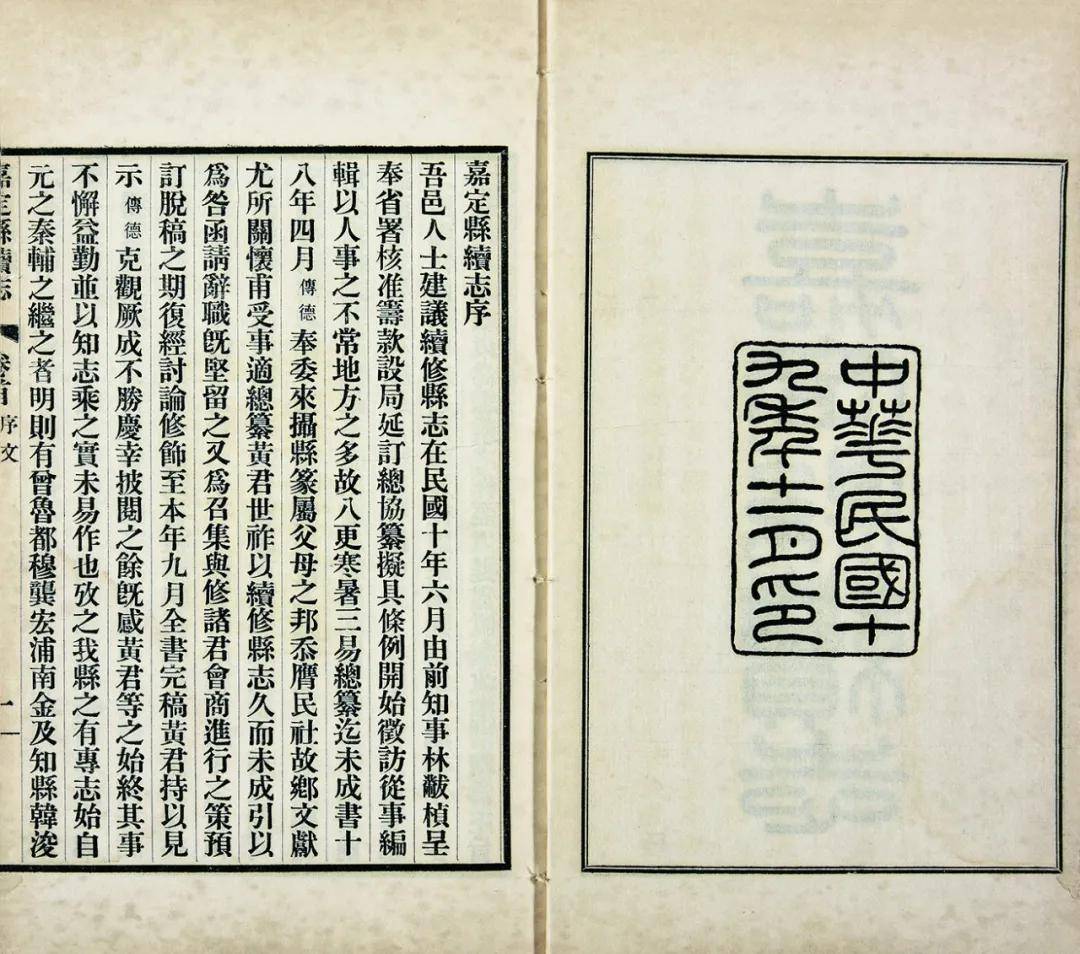 中華民國十
九年十一月印
嘉定縣續志序
吾邑人士建議續修縣志在民國十年六月由前知事林黻楨呈
奉省署核准籌款設局延訂總協纂擬具條例開始徵訪從事編
輯以人事之不常地方之多故八更寒暑三易總纂迄未成書十
八年四月傳德奉委來攝縣篆屬父母之邦忝膺民社故鄉文獻
尤所關懷甫受事適總纂黃君世祚以續修縣志久而未成引以
爲咎函請辭職旣堅留之又爲召集與修諸君會商進行之策預
訂脫稿之期復經討論修飾至本年九月全書完稿黃君持以見
示傳德克觀厥成不勝慶幸披閱之餘旣感黃君等之始終其事
不懈益勤並以知志乘之實未易作也攷之我縣之有專志始自
元之秦輔之繼之者明則有曾魯都穆龔宏浦南金及知縣韓浚
嘉定縣續志 卷首 序文 一